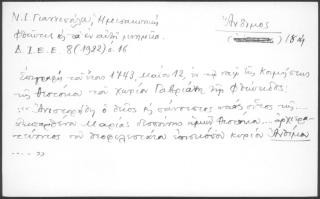 Ν.Ι. Γιαννόπουλος, Μεσαιωνική
Φθιῶτις κ τὰ ἐν αὐτῇ μνημεῖα
Δ.Ι.Ε.Ε. 8 (1922) σ. 16
Ἄνθιμος
Ἐπιγραφὴ τοῦ ἔτους 1743, Μαΐου 12, ἐν τῷ ναῷ τῆς Κοιμήσεως
τῆς Θεοτόκου τοῦ χωρίου Γαβριάνη τῆς Φθιώτιδος:
"Ἀνιστορήθη ὁ θεῖος κ πάνσεπτος ναὸς οὗτος τῆς ...
Μαρίας δεσποίνης ἡμῶν Θεοτόκου ... ἀρχιερα-
τεύοντος τοῦ θεοφιλεστάτου ἐπισκόπου κυρίου Ἀνθίμου
..... "